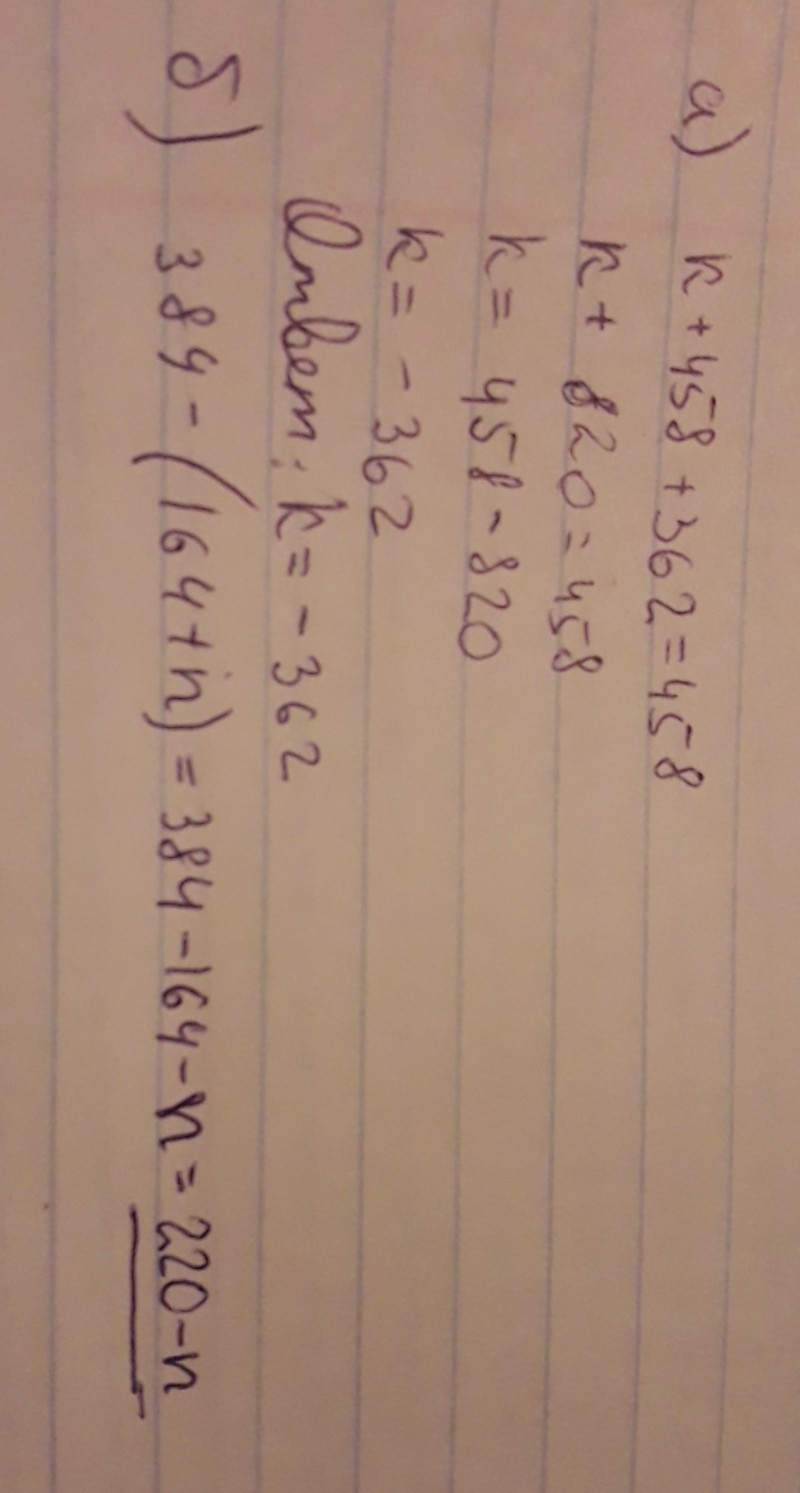 а) k + 458 + 362 = 458
k + 820 = 458
k = 458 - 820
k = - 362
Ответ: k = - 362
б) 384 - (164 + n) = 384 - 164 - n = 220 - n